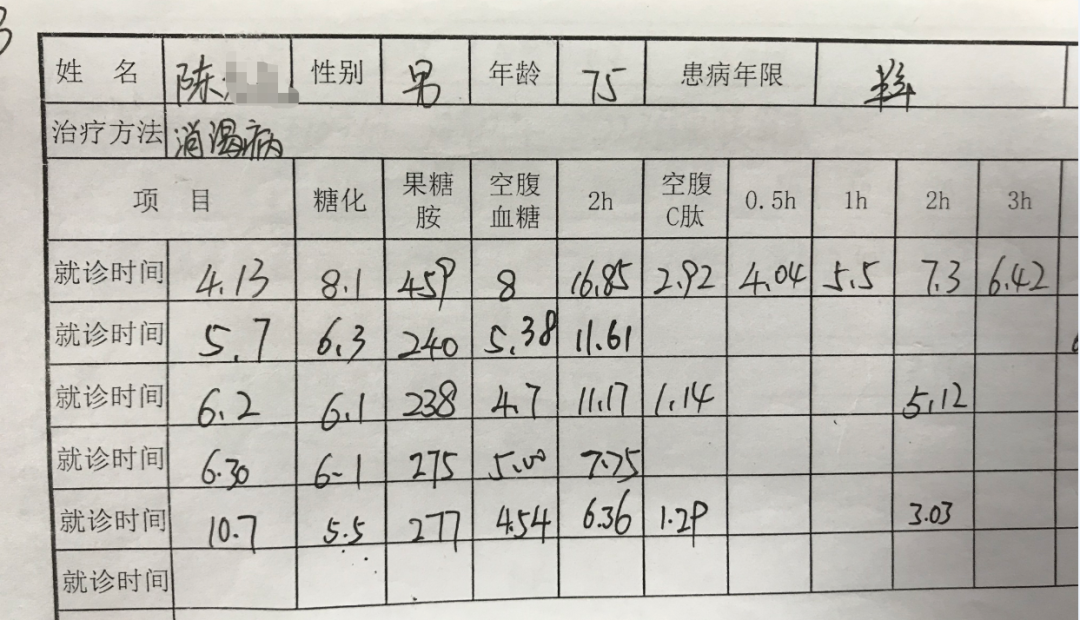 姓 名 陈 性别 男 年龄 75 患病年限 半年
治疗方法 消渴病
项 目 糖化 果糖胺 空腹血糖 2h 空腹C肽 0.5h 1h 2h 3h
就诊时间 4.13 8.1 459 8 16.85 2.92 4.04 5.5 7.3 6.42
就诊时间 5.7 6.3 240 5.38 11.61
就诊时间 6.2 6.1 238 4.7 11.17 1.14 5.12
就诊时间 6.30 6.1 275 5.00 7.75
就诊时间 10.7 5.5 277 4.54 6.36 1.29 3.03
就诊时间